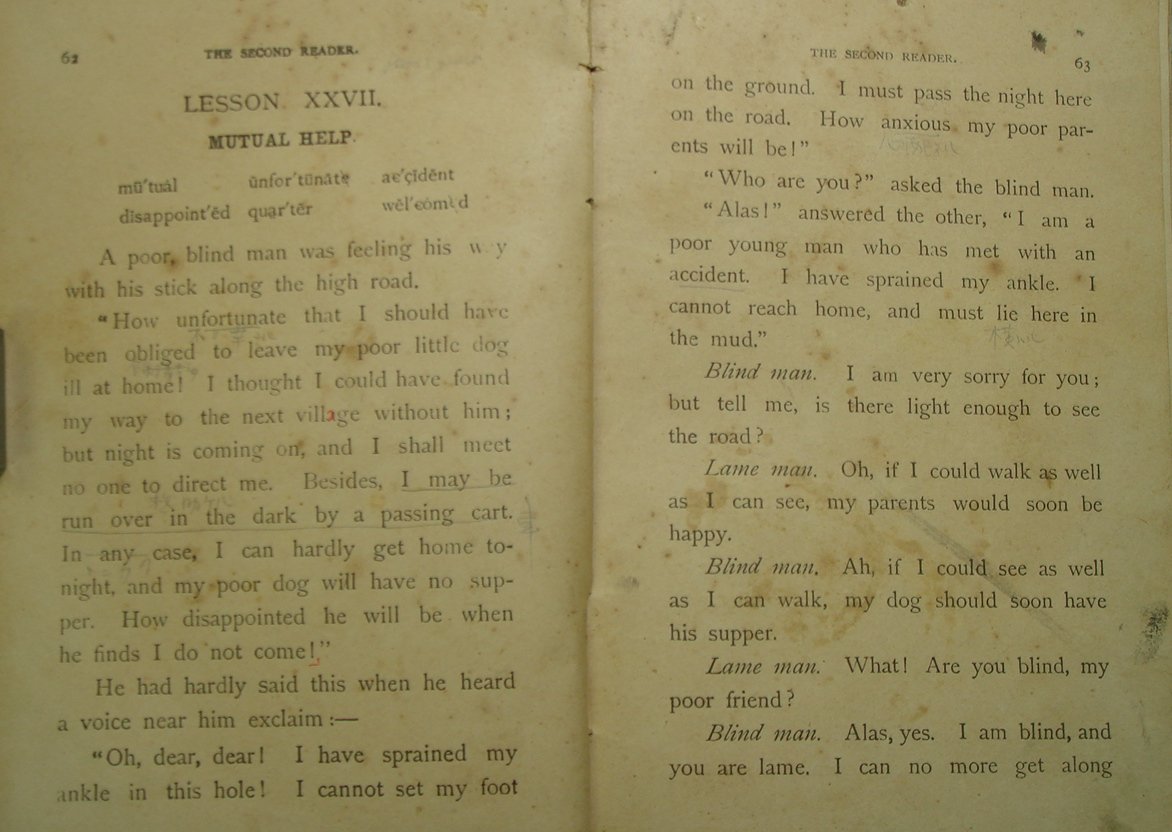 62
THE SECOND READER.
LESSON XXVII.
MUTUAL HELP.
mū′tuȧl ŭnfor′tūnāte ac′çĭdĕnt
dĭsappoint′ĕd quạr′tẽr wĕl′comed
A poor, blind man was feeling his way
with his stick along the high road.
“How unfortunate that I should have
been obliged to leave my poor little dog
ill at home! I thought I could have found
my way to the next village without him;
but night is coming on, and I shall meet
no one to direct me. Besides, I may be
run over in the dark by a passing cart.
In any case, I can hardly get home to-
night, and my poor dog will have no sup-
per. How disappointed he will be when
he finds I do not come!”
He had hardly said this when he heard
a voice near him exclaim:—
“Oh, dear, dear! I have sprained my
ankle in this hole! I cannot set my foot
THE SECOND READER.
63
on the ground. I must pass the night here
on the road. How anxious my poor par-
ents will be!”
“Who are you?” asked the blind man.
“Alas!” answered the other, “I am a
poor young man who has met with an
accident. I have sprained my ankle. I
cannot reach home, and must lie here in
the mud.”
Blind man. I am very sorry for you;
but tell me, is there light enough to see
the road?
Lame man. Oh, if I could walk as well
as I can see, my parents would soon be
happy.
Blind man. Ah, if I could see as well
as I can walk, my dog should soon have
his supper.
Lame man. What! Are you blind, my
poor friend?
Blind man. Alas, yes. I am blind, and
you are lame. I can no more get along